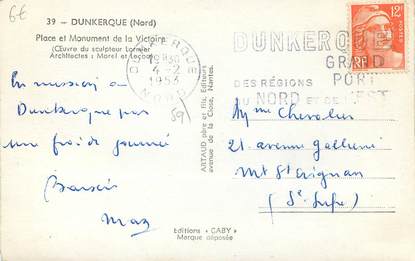 6€
39 - DUNKERQUE (Nord)
Place et Monument de la Victoire
(Œuvre du sculpteur Lorrier
Architectes : Morel et Lecocq)
DUNKERQUE
12 H30
4 - 2
1953
NORD
DUNKERQUE
GRAND
PORT
DES RÉGIONS
DU NORD ET DE L'EST
12F
RF
POSTES
ARTAUD père et fils, Editeurs
avenue de la Close, Nantes.
En mission à
Dunkerque par
un froide journée
Baisers
Max
Mme Chevalier
21 avenue Gallieni
Mt St Aignan
(Se Infre)
Editions "GABY"
Marque déposée